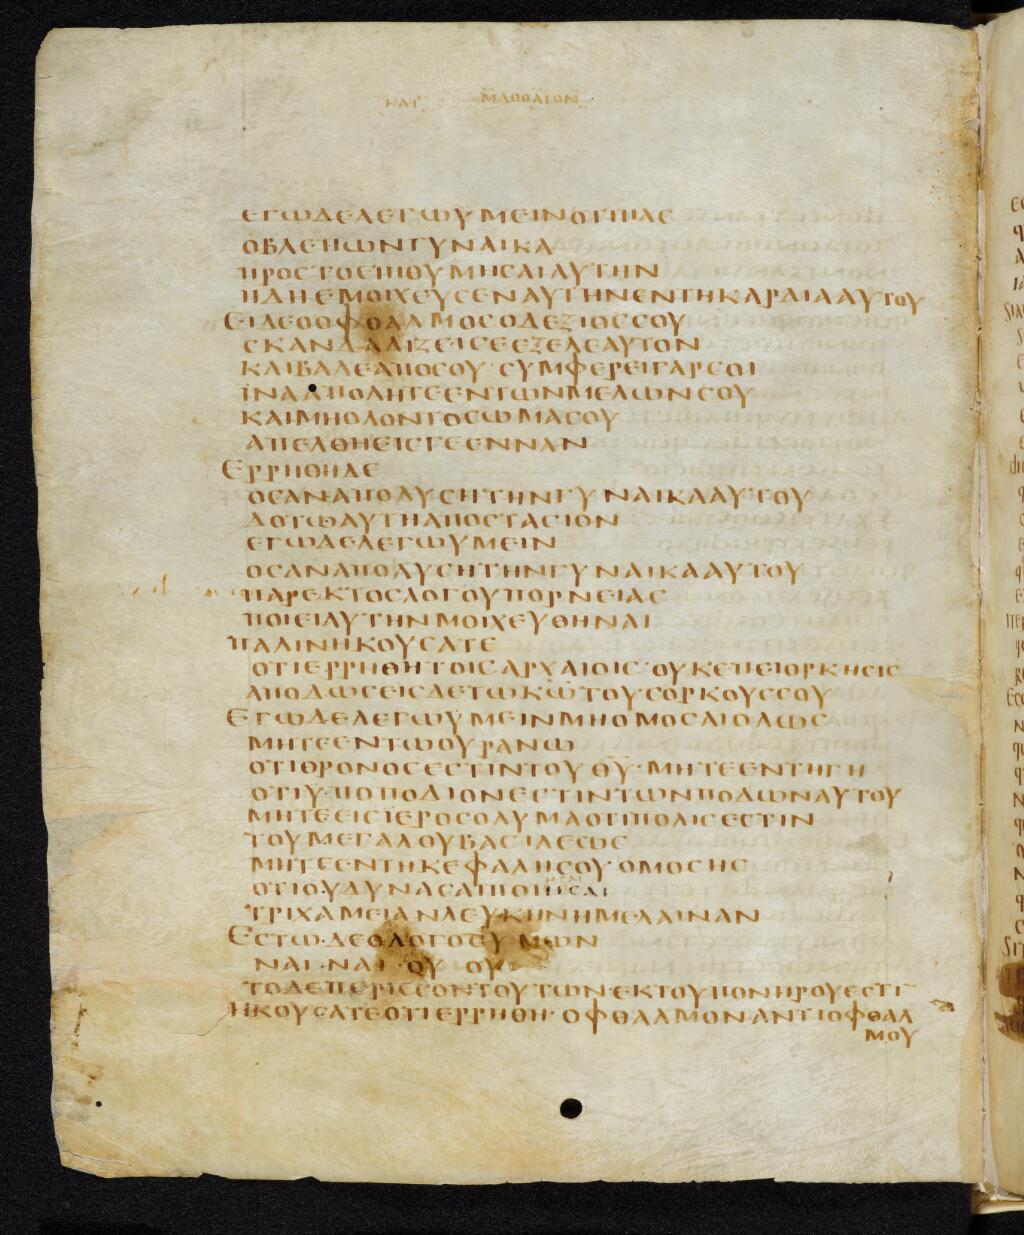 ΚΑΤ ΜΑΘΘΑΙΟΝ
ΕΓΩΔΕΛΕΓΩΥΜΕΙΝΟΤΙΠΑΣ
ΟΒΛΕΠΩΝΓΥΝΑΙΚΑ
ΠΡΟΣΤΟΕΠΙΘΥΜΗΣΑΙΑΥΤΗΝ
ΗΔΗΕΜΟΙΧΕΥΣΕΝΑΥΤΗΝΕΝΤΗΚΑΡΔΙΑΑΥΤΟΥ
ΕΙΔΕΟΟΦΘΑΛΜΟΣΟΔΕΞΙΟΣΣΟΥ
ΣΚΑΝΔΑΛΙΖΕΙΣΕΕΞΕΛΕΑΥΤΟΝ
ΚΑΙΒΑΛΕΑΠΟΣΟΥ·ΣΥΜΦΕΡΕΙΓΑΡΣΟΙ
ΪΝΑΑΠΟΛΗΤΕΕΝΤΩΝΜΕΛΩΝΣΟΥ
ΚΑΙΜΗΟΛΟΝΤΟΣΩΜΑΣΟΥ
ΑΠΕΛΘΗΕΙΣΓΕΕΝΝΑΝ
ΕΡΡΗΘΗΔΕ
ΟΣΑΝΑΠΟΛΥΣΗΤΗΝΓΥΝΑΙΚΑΑΥΤΟΥ
ΔΟΤΩΑΥΤΗΑΠΟΣΤΑΣΙΟΝ
ΕΓΩΔΕΛΕΓΩΥΜΕΙΝ
ΟΣΑΝΑΠΟΛΥΣΗΤΗΝΓΥΝΑΙΚΑΑΥΤΟΥ
ΠΑΡΕΚΤΟΣΛΟΓΟΥΠΟΡΝΕΙΑΣ
ΠΟΙΕΙΑΥΤΗΝΜΟΙΧΕΥΘΗΝΑΙ
ΠΑΛΙΝΗΚΟΥΣΑΤΕ
ΟΤΙΕΡΡΗΘΗΤΟΙΣΑΡΧΑΙΟΙΣ·ΟΥΚΕΠΕΙΟΡΚΗΣΙΣ
ΑΠΟΔΩΣΕΙΣΔΕΤΩΚΩΤΟΥΣΟΡΚΟΥΣΣΟΥ
ΕΓΩΔΕΛΕΓΩΥΜΕΙΝΜΗΟΜΟΣΑΙΟΛΩΣ
ΜΗΤΕΕΝΤΩΟΥΡΑΝΩ
ΟΤΙΘΡΟΝΟΣΕΣΤΙΝΤΟΥΘΥ·ΜΗΤΕΕΝΤΗΓΗ
ΟΤΙΥΠΟΠΟΔΙΟΝΕΣΤΙΝΤΩΝΠΟΔΩΝΑΥΤΟΥ
ΜΗΤΕΕΙΣΪΕΡΟΣΟΛΥΜΑΟΤΙΠΟΛΙΣΕΣΤΙΝ
ΤΟΥΜΕΓΑΛΟΥΒΑΣΙΛΕΩΣ
ΜΗΤΕΕΝΤΗΚΕΦΑΛΗΣΟΥΟΜΟΣΗΣ
ΟΤΙΟΥΔΥΝΑΣΑΙΠΟΙΗΣΑΙ
ΤΡΙΧΑΜΕΙΑΝΛΕΥΚΗΝΗΜΕΛΑΙΝΑΝ
ΕΣΤΩ·ΔΕΟΛΟΓΟΣΥΜΩΝ
ΝΑΙ·ΝΑΙ·ΟΥ ΟΥ
ΤΟΔΕΠΕΡΙΣΣΟΝΤΟΥΤΩΝΕΚΤΟΥΠΟΝΗΡΟΥΕΣΤΙ
ΗΚΟΥΣΑΤΕΟΤΙΕΡΡΗΘΗ·ΟΦΘΑΛΜΟΝΑΝΤΙΟΦΘΑΛ
ΜΟΥ